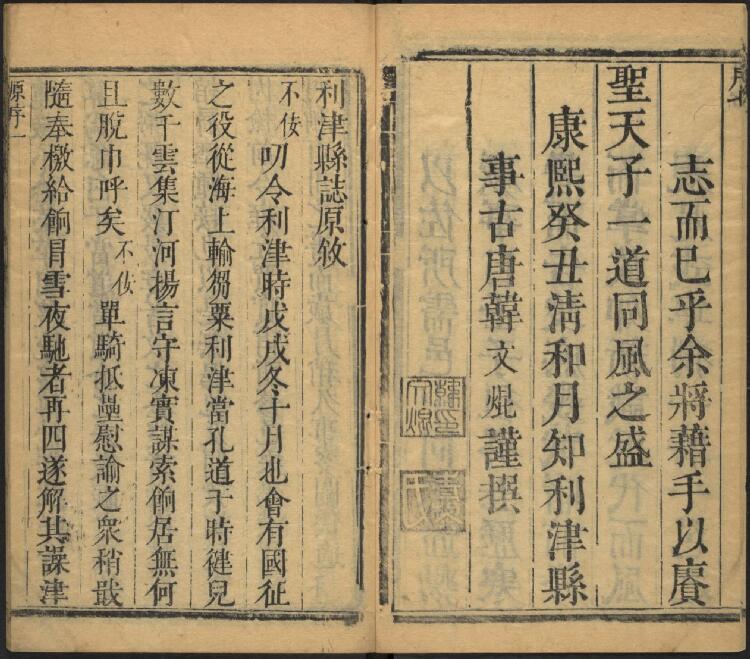 序七
志而已乎余將藉手以賡
聖天子一道同風之盛
康熙癸丑清和月知利津縣
事古唐韓文焜謹撰
利津縣誌原敘
不佞叨令利津時戊戌冬十月也會有國征
之役從海上輸芻粟利津當孔道于時健兒
數千雲集汀河揚言守凍實謀索餉居無何
且脫巾呼矣不佞單騎抵壘慰諭之衆稍戢
隨奉檄給餉冐雪夜馳者再四遂解其譟津
源序一